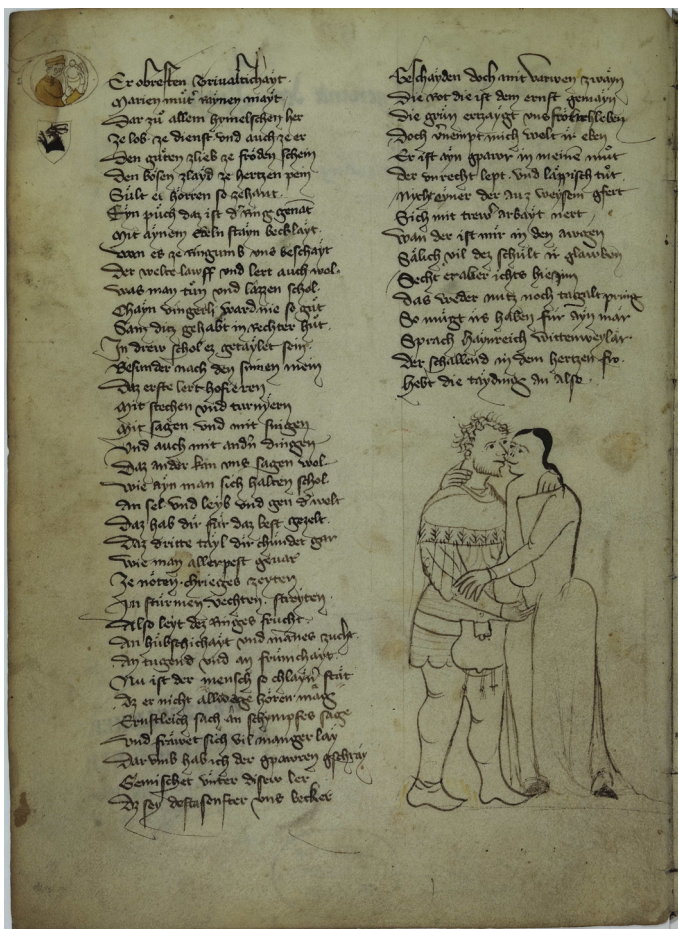 Er obresten Trivaltichäyt
Marien můtr raynen mayt
Dar zů allem hymelschen her
Ze lob ze dienst und auch ze er
Den gůten ze lieb ze fröden schein
Den bösen ze layd ze hertzen pein
Sült ir hörren so zehant
Eyn půch daz ist dr ring genāt
Mit aynem edeln stayn becklayt
Wan es ze ringumb uns beschayt
Der welte lawff und lert auch wol
Was man tůn und lazzen schol
Chain vingerli ward nie so gůt
Sam ditz gehabt in rechter hůt
In drew schol ez getaylet sein
Besunder nach den sinnen mein
Daz erste lert hofieren
Mit stechen und turnyern
Mit sagen und mit singen
Und auch mit andrn dingen
Daz ander kan uns sagen wol
Wie ayn man sich halten schol
An sel und leyb und gen dr welt
Daz hab dir für daz best gezelt
Daz dritte tayl dir chündet gar
Wie man allerpest gevar
Ze nöten chrieges zeyten
In stürmen vechten streyten
Also leyt dez ringes frucht
An hübschichäyt und mānes zucht
An tugend und an frümchäyt
Nu ist der mensch so chlaynr stät
Dz er nicht allwege hören mag
Ernstleich sach an schympfes sag
Und fräwet sich vil manger lay
Dar umb hab ich der gpawren gschray
Gemischet unter disew ler
Dz sey desta senfter uns becker
Geschayden doch mit varwen zwayn
Die rot die ist dem ernst gemayn
Die grün ertzaygt uns törpelleben
Doch vernempt mich welt ir eben
Er ist ayn gpawr in meinē můt
Der unrecht lept und läppisch tůt
Nicht eyner der auz weysem gfert
Sich mit trewr arbäyt nert
Wan der ist mir in den augen
Sälich vil dez schült ir glawben
Secht er aber ichts hie inn
Das weder nutz noch tagalt pring
So mügt irs haben für ayn mär
Sprach Haynreich Wittenweylär
Der schallend in dem hertzen fro
Hebt die täyding an also